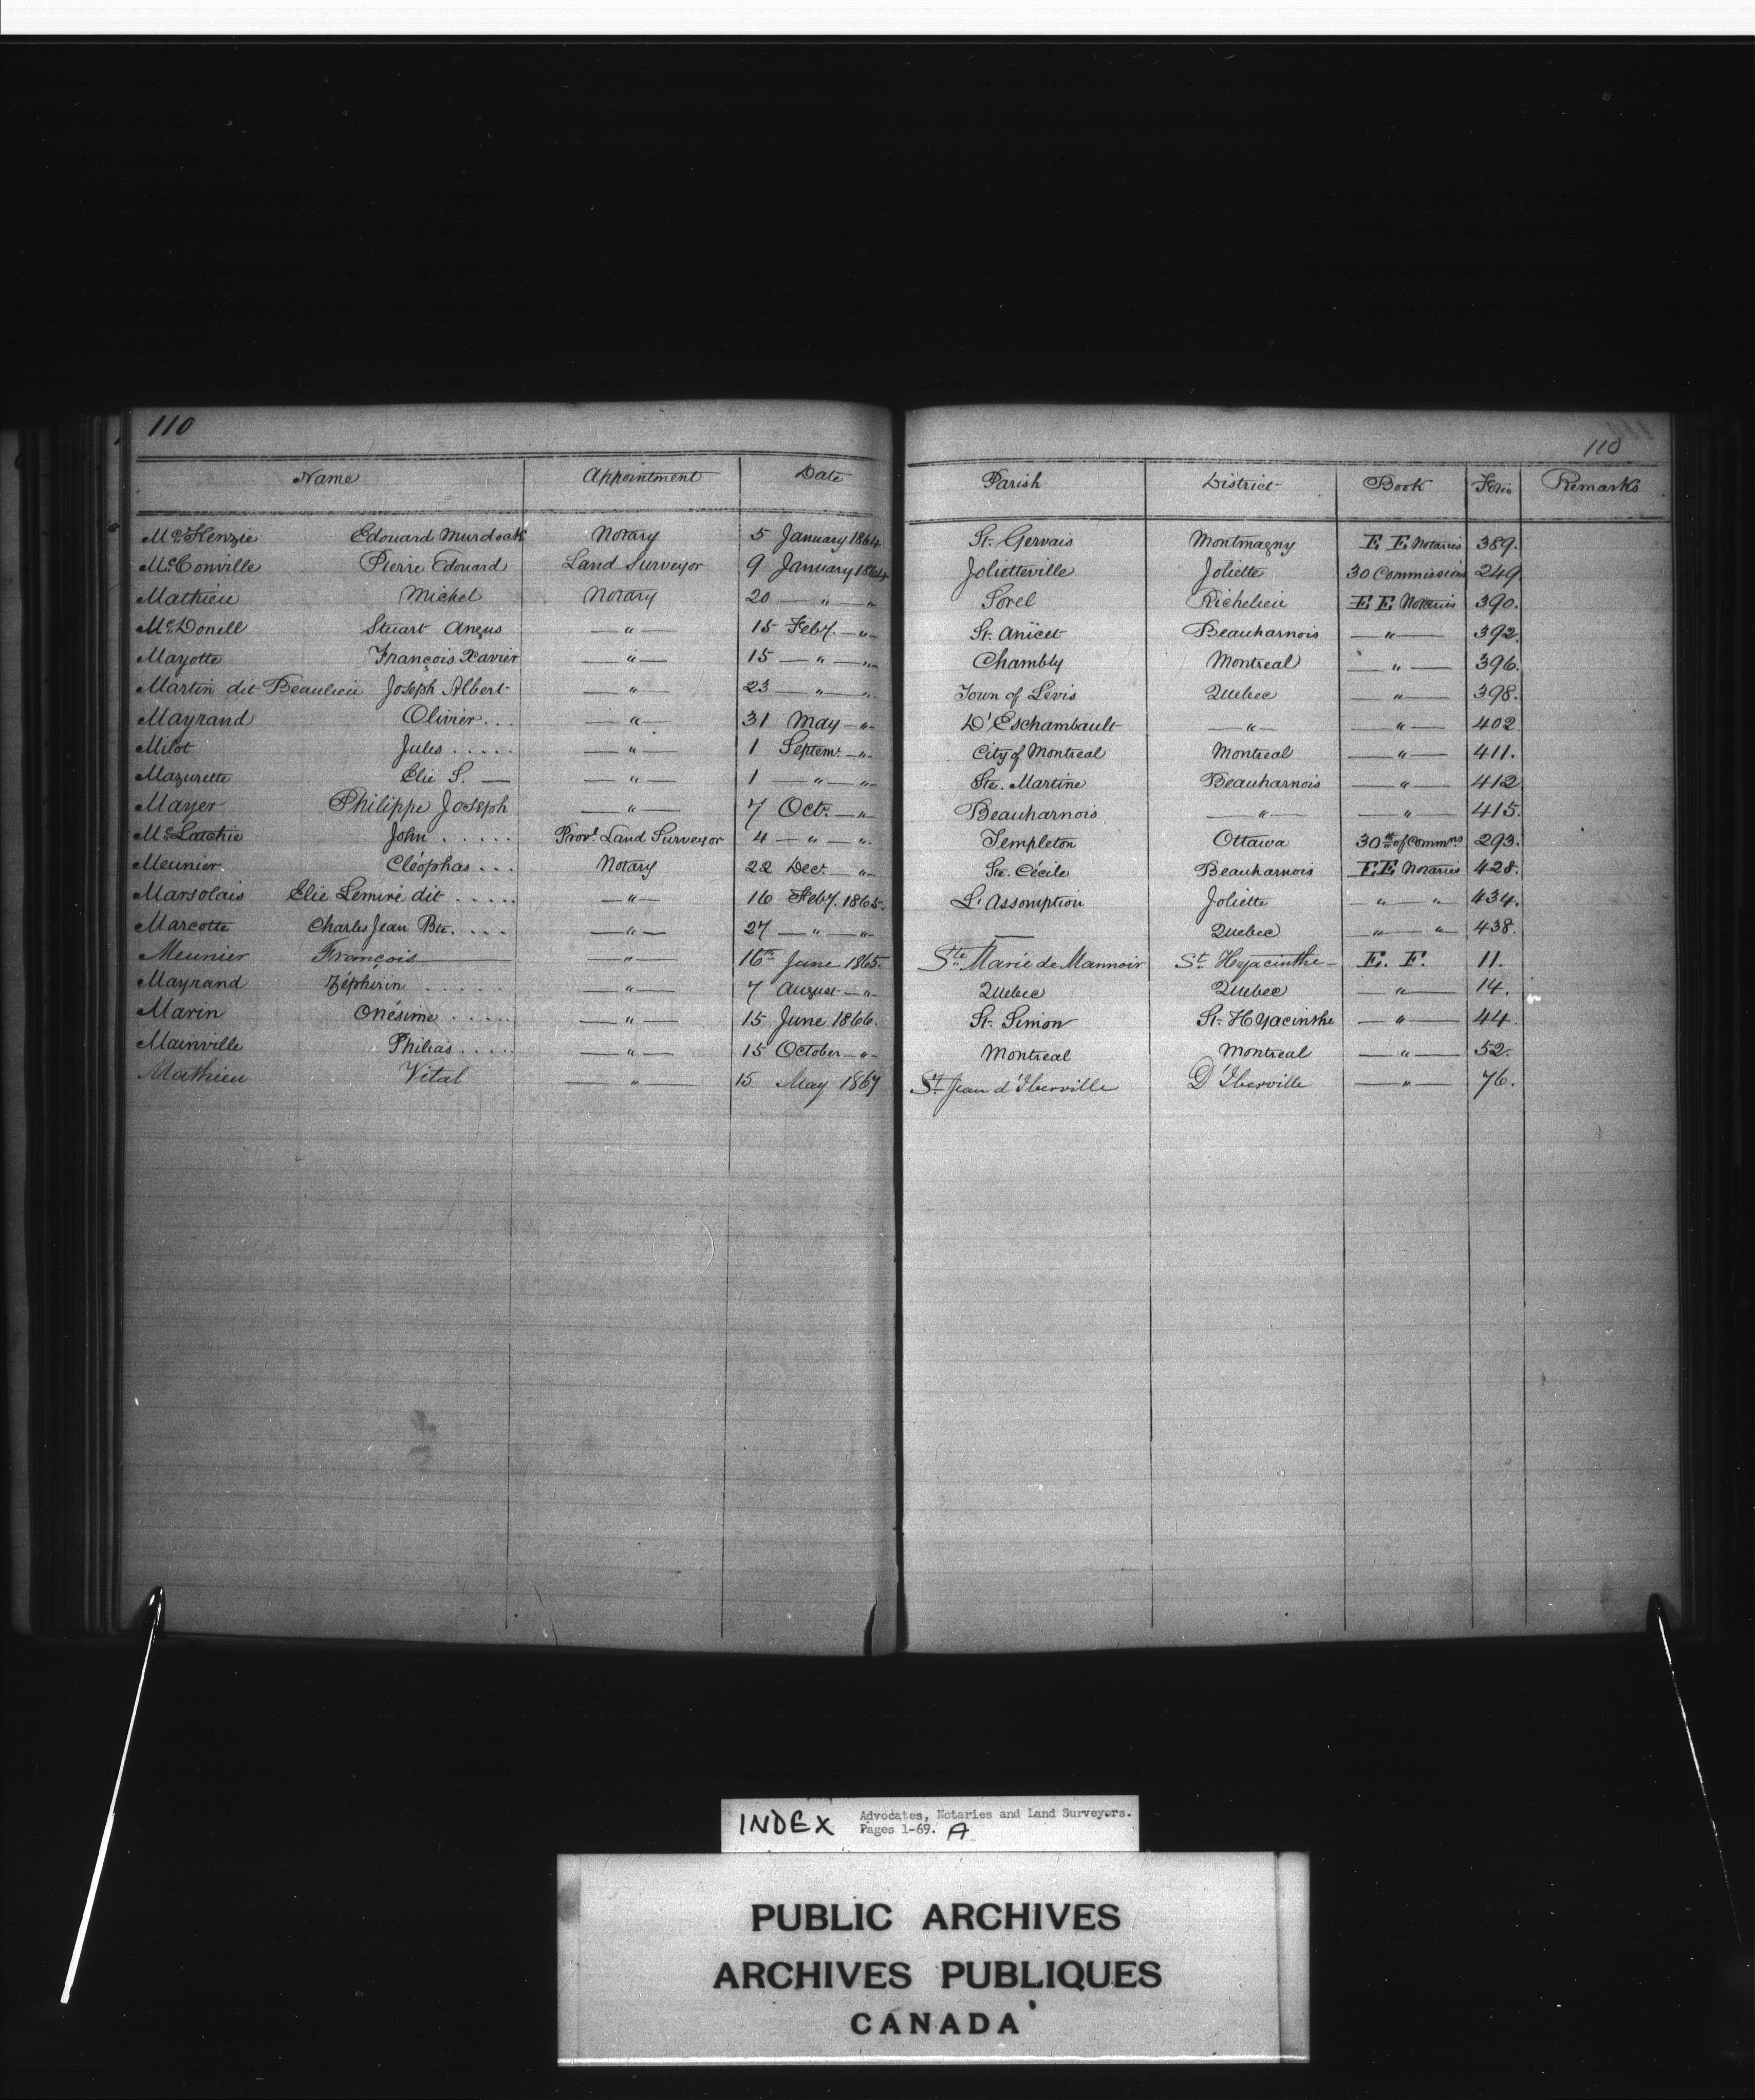 110
110
Name Appointment Date Parish District Book Folio Remarks
McKenzie Edouard Murdock Notary 5 January 1864 St. Gervais Montmagny E E Notaries 389.
McConville Pierre Edouard Land Surveyor 9 January 1864 Jolietteville Joliette 30 Commissions 249
Mathieu Michel Notary 20 — " — " Sorel Richelieu E E Notaries 390.
McDonell Stuart Angus — " — 15 Feby. — " St. Anicet Beauharnois — " — 392.
Mayotte François Xavier — " — 15 — " — " Chambly Montreal — " — 396.
Martin dit Beaulieu Joseph Albert — " — 23 — " — " Town of Lévis Quebec — " — 398.
Mayrand Olivier . . . — " — 31 May — " D'Eschambault — " — — " — 402
Milot Jules . . . . . — " — 1 Septemr. — " City of Montreal Montreal — " — 411.
Mazurette Elie S. — — " — 1 — " — " Ste. Martine Beauharnois — " — 412
Mayer Philippe Joseph — " — 7 Octr. — " Beauharnois — " — — " — 415.
McLatchie John . . . . . Provl. Land Surveyor 4 — " — " Templeton Ottawa 30th of Commns 293.
Meunier Cléophas . . . Notary 22 Decr. — " Ste. Cécile Beauharnois EE Notaries 428.
Marsolais Elie Lemire dit . . . . . — " — 16 Feby. 1865. L'Assomption Joliette — " " 434.
Marcotte Charles Jean Bte. . . . — " — 27 — " — " — Quebec — " — " 438.
Meunier François — " — 16th June 1865. Ste Marie de Mannoir St. Hyacinthe E. F. 11.
Mayrand Zéphirin . . . . . — " — 7 August — " Quebec Quebec — " — 14.
Marin Onésime . . . . . — " — 15 June 1866. St. Simon St. Hyacinthe — " — 44
Mainville Philias . . . . — " — 15 October — " Montreal Montreal — " — 52.
Mathieu Vital — " — 15 May 1867 St. Jean d'Iberville D'Iberville — " — 76.
INDEX Advocates, Notaries and Land Surveyors.
Pages 1-69. A
PUBLIC ARCHIVES
ARCHIVES PUBLIQUES
CANADA